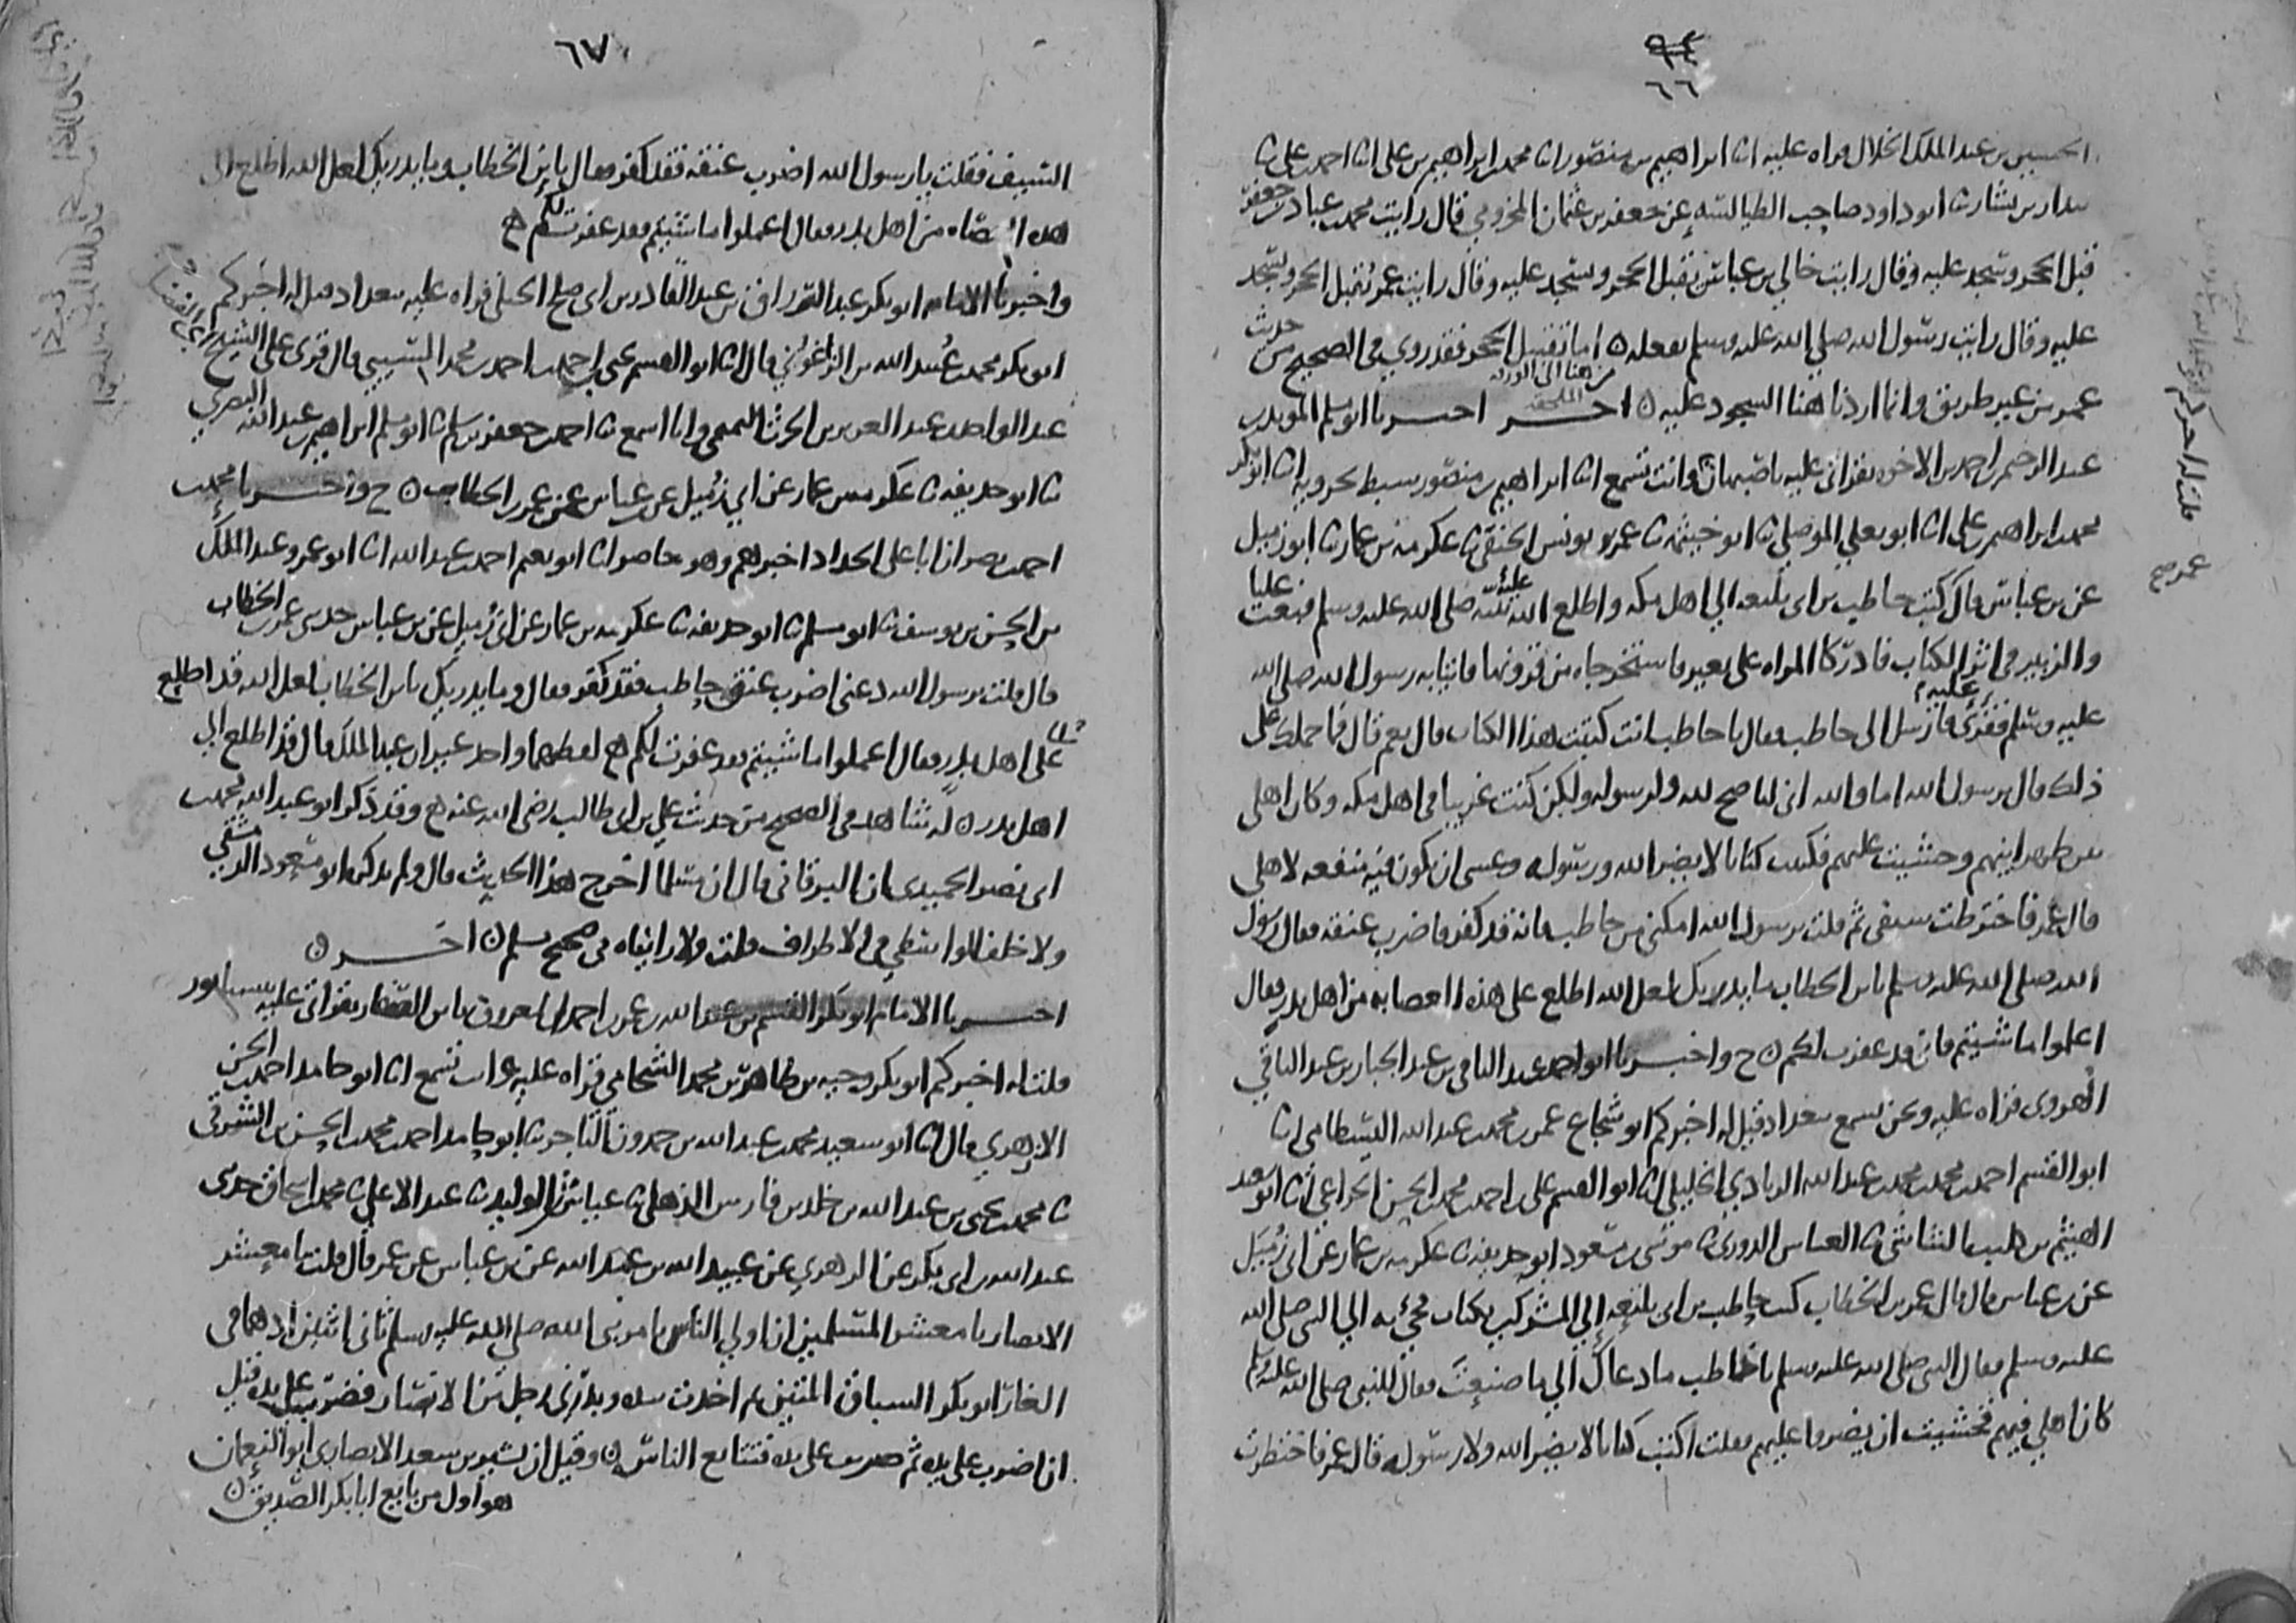 ٩٤
٦٦
الحسين بن عبد الملك الخلال قراه عليه انا ابراهيم بن منصور انا محمد بن ابراهيم بن علي انا احمد بن علي نا
بندار بن بشار نا ابو داود صاحب الطيالسه عن جعفر بن عثمان المخزومي قال رايت محمد بن عباد بن جعفر
قبل الحجر وسجد عليه وقال رايت خالي بن عباس يقبل الحجر ويسجد عليه وقال رايت عمر يقبل الحجر ويسجد
عليه وقال رايت رسول الله صلي الله عليه وسلم يفعله ه اما تقبيل الحجر فقد روي في الصحيح من حديث
عمر من غير طريق وانما اردنا هنا السجود عليه ه اخـــر اخبرنا ابو مسلم المويد بن
من هنا الى الورقه الملحقه
عبد الرحيم بن احمد بن الاخوه بقراتي عليه باصبهان وانت تسمع انا ابراهيم بن منصور سبط بحرويه انا ابو بكر
محمد بن ابراهيم بن علي انا ابو يعلي الموصلي نا ابو خيثمه نا عمر بن يونس الحنفي نا عكرمه بن عمار نا ابو زميل
عن بن عباس قال كتب حاطب بن ابي بلتعه الي اهل مكه واطلع الله عليه نبيه صلى الله عليه وسلم فبعث عليا
والزبير في اثر الكتاب فادركا المراه على بعير فاستخرجاه من قرونها فاتيا به رسول الله صلى الله
عليه وسلم فقري عليه فارسل الى حاطب فقال يا حاطب انت كتبت هذا الكتاب قال نعم قال فما حملك على
ذلك قال يرسول الله اما والله اني لناصح لله ولرسوله ولكن كنت غريبا في اهل مكه وكان اهلي
بين ظهرانيهم وخشيت عليهم فكتبت كتابا لا يضر الله ورسوله وعسى ان يكون فيه منفعه لاهلي
قال عمر فاخترطت سيفي ثم قلت يرسول الله امكني من حاطب فانه قد كفر فاضرب عنقه فقال رسول
الله صلى الله عليه وسلم يا بن الخطاب ما يدريك لعل الله اطلع على هذه العصابه من اهل بدر فقال
اعملوا ما شيتم فاني قد غفرت لكم ه ح واخبرنا ابو احمد عبد الباقي بن عبد الجبار بن عبد الباقي
الهروي قراه عليه ونحن نسمع ببغداد قيل له اخبركم ابو شجاع عمر بن محمد بن عبد الله البسطامي انا
ابو القسم احمد بن محمد بن محمد بن عبد الله الزيادي الخليلي انا ابو القسم علي بن احمد بن محمد بن الحسن الخزاعي انا ابو سعيد
الهيثم بن كليب الشاشي نا العباس الدوري نا موسى بن مسعود ابو حذيفه نا عكرمه بن عمار عن ابي زميل
عن بن عباس قال قال عمر بن الخطاب كتب حاطب بن ابي بلتعه الي المشركين بكتاب فجئ به الي النبي صلى الله
عليه وسلم فقال النبي صلى الله عليه وسلم يا حاطب ما دعاك الي ما صنعت فقال للنبي صلى الله عليه وسلم
كان اهلي فيهم فخشيت ان يضروا عليهم فقلت اكتب كتابا لا يضر الله ولا رسوله قال عمر فاخترطت
٦٧
السيف فقلت يا رسول الله اضرب عنقه فقد كفر فقال يا بن الخطاب وما يدريك لعل الله اطلع الى
هذه العصابه من اهل بدر فقال اعملوا ما شيتم فقد غفرت لكم ه
واخبرنا الامام ابو بكر عبد الرزاق بن عبد القادر بن ابي صلح الجيلي قراه عليه ببغداد قيل له اخبركم
ابو بكر محمد بن عبيد الله بن الزاغوني قال انا ابو القسم علي بن احمد بن محمد البسري قال قري على الشيخ
عبد الواحد بن عبد العزيز بن الحرث التميمي وانا اسمع نا احمد بن جعفر بن سلم نا ابو مسلم ابراهيم بن عبد الله البصري
نا ابو حذيفه نا عكرمه بن عمار عن ابي زميل عن بن عباس عن عمر بن الخطاب ه ح واخبرنا محمد بن
احمد بن نصر ان ابا علي الحداد اخبرهم وهو حاضر انا ابو نعيم احمد بن عبد الله انا ابو عمرو عبد الملك
بن الحسن بن يوسف نا ابو مسلم نا ابو حذيفه نا عكرمه بن عمار عن ابي زميل عن بن عباس حدثني عمر بن الخطاب
قال قلت يرسول الله دعني اضرب عنق حاطب فقد كفر فقال وما يدريك يا بن الخطاب لعل الله قد اطلع
على اهل بدر فقال اعملوا ما شيتم فقد غفرت لكم ه لفظهما واحد غير ان عبد الملك قال قد اطلع الي
اهل بدر ه له شاهد في الصحيح من حديث علي بن ابي طالب رضي الله عنه ه وقد ذكر ابو عبد الله محمد بن
ابي نصر الحميدي ان البرقاني قال ان مسلما اخرج هذا الحديث قال ولم يذكره ابو مسعود الدمشقي
ولا خلف الواسطي في الاطراف قلت ولا رايناه في صحيح مسلم ه اخـــر ه
اخبرنا الامام ابو بكر القسم بن عبد الله بن عمر بن احمد المعروف بابن الصفار بقراتي عليه بنيسابور
قلت له اخبركم ابو بكر وجيه بن طاهر بن محمد الشحامي قراه عليه وانت تسمع انا ابو حامد احمد بن الحسن
الازهري قال انا ابو سعيد محمد بن عبد الله بن حمدون التاجر نا ابو حامد احمد بن محمد بن الحسن بن الشرقي
نا محمد بن يحيى بن عبد الله بن خلد بن فارس الذهلي نا عياش بن الوليد نا عبد الاعلي نا محمد بن اسحاق حدثني
عبد الله بن ابي بكر عن الزهري عن عبيد الله بن عبد الله عن بن عباس عن عمر قال قلت يا معشر
الانصار يا معشر المسلمين ان اولي الناس بامر نبي الله صلى الله عليه وسلم ثاني اثنين اذ هما في
الغار ابو بكر السباق المتين ثم اخذت بيده وبدرني رجل من الانصار فضرب على يده قبل
ان اضرب على يده ثم ضربت على يده فتتابع الناس ه وقيل ان بشير بن سعد الانصاري ابو النعمان
هو اول من بايع ابا بكر الصديق ه